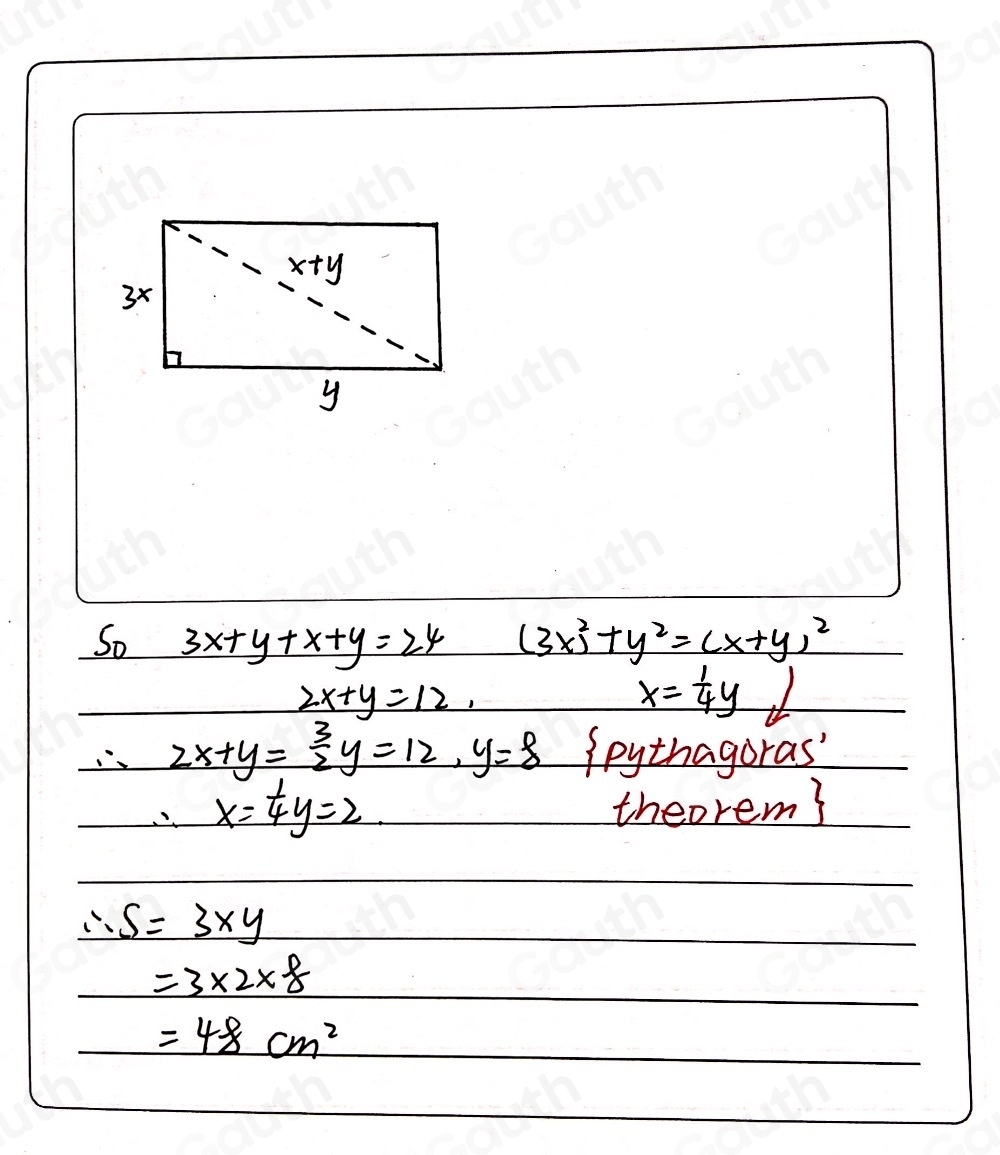 x+y
3x
y
So 3x+y+x+y=24 (3x)²+y²=(x+y)²
2x+y=12, x=¼y
∴ 2x+y=3/2y=12, y=8 {pythagoras'
∴ x=¼y=2. theorem}
∴S= 3xy
=3×2×8
=48 cm²